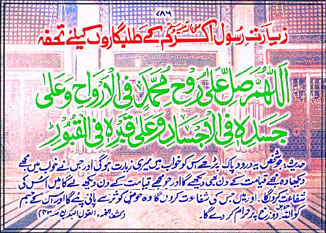 ۷۸۶
زیارت رسول اکرم ﷺ کے طلبگاروں کیلئے تحفہ
اللهم صل على روح محمد في الأرواح وعلى
جسده في الأجساد وعلى قبره في القبور
حدیث: جو شخص یہ درود پاک پڑھے اس کو خواب میں میری زیارت ہوگی اور جس نے خواب میں مجھے
دیکھا وہ مجھے قیامت کے دن بھی دیکھے گا اور جو مجھے قیامت کے دن دیکھ لے گا میں اس کی
شفاعت کروں گا۔ اور میں جس کی شفاعت کروں گا وہ حوض کوثر سے پانی پئے گا اور اس کے جسم
کو اللہ دوزخ پر حرام کر دے گا۔ کشف الغمہ، القول البدیع